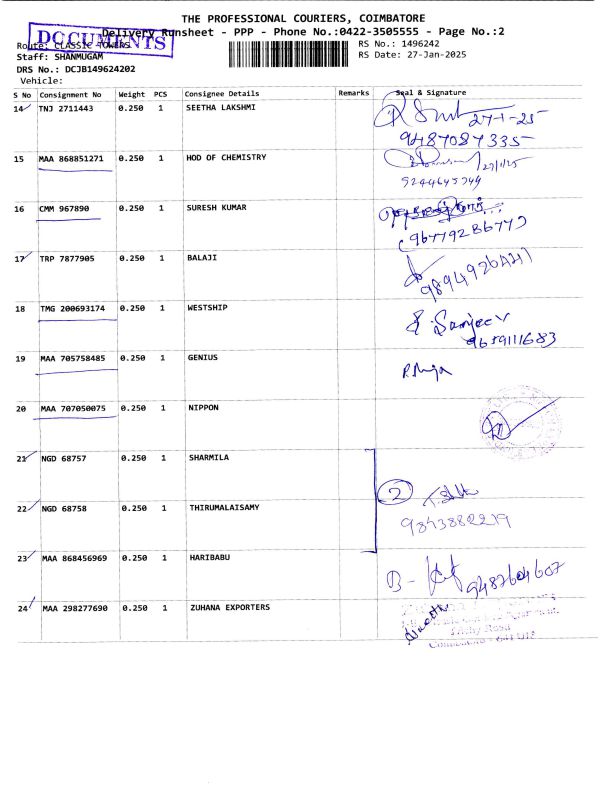 THE PROFESSIONAL COURIERS, COIMBATORE
Delivery Runsheet - PPP - Phone No.:0422-3505555 - Page No.:2
DOCUMENTS
Route: CLASSIC TOWERS
RS No.: 1496242
Staff: SHANMUGAM
RS Date: 27-Jan-2025
DRS No.: DCJB149624202
Vehicle:
S No Consignment No Weight PCS Consignee Details Remarks Seal & Signature
14 TNJ 2711443 0.250 1 SEETHA LAKSHMI
27-1-25
9487087335
15 MAA 868851271 0.250 1 HOD OF CHEMISTRY
27/1/25
16 CMM 967890 0.250 1 SURESH KUMAR
9677928677
17 TRP 7877905 0.250 1 BALAJI
18 TMG 200693174 0.250 1 WESTSHIP
S. Sanjeev
9659111683
19 MAA 705758485 0.250 1 GENIUS
20 MAA 707050075 0.250 1 NIPPON
21 NGD 68757 0.250 1 SHARMILA
2
22 NGD 68758 0.250 1 THIRUMALAISAMY
9843882219
23 MAA 868456969 0.250 1 HARIBABU
9487604607
24 MAA 298277690 0.250 1 ZUHANA EXPORTERS
Trichy Road